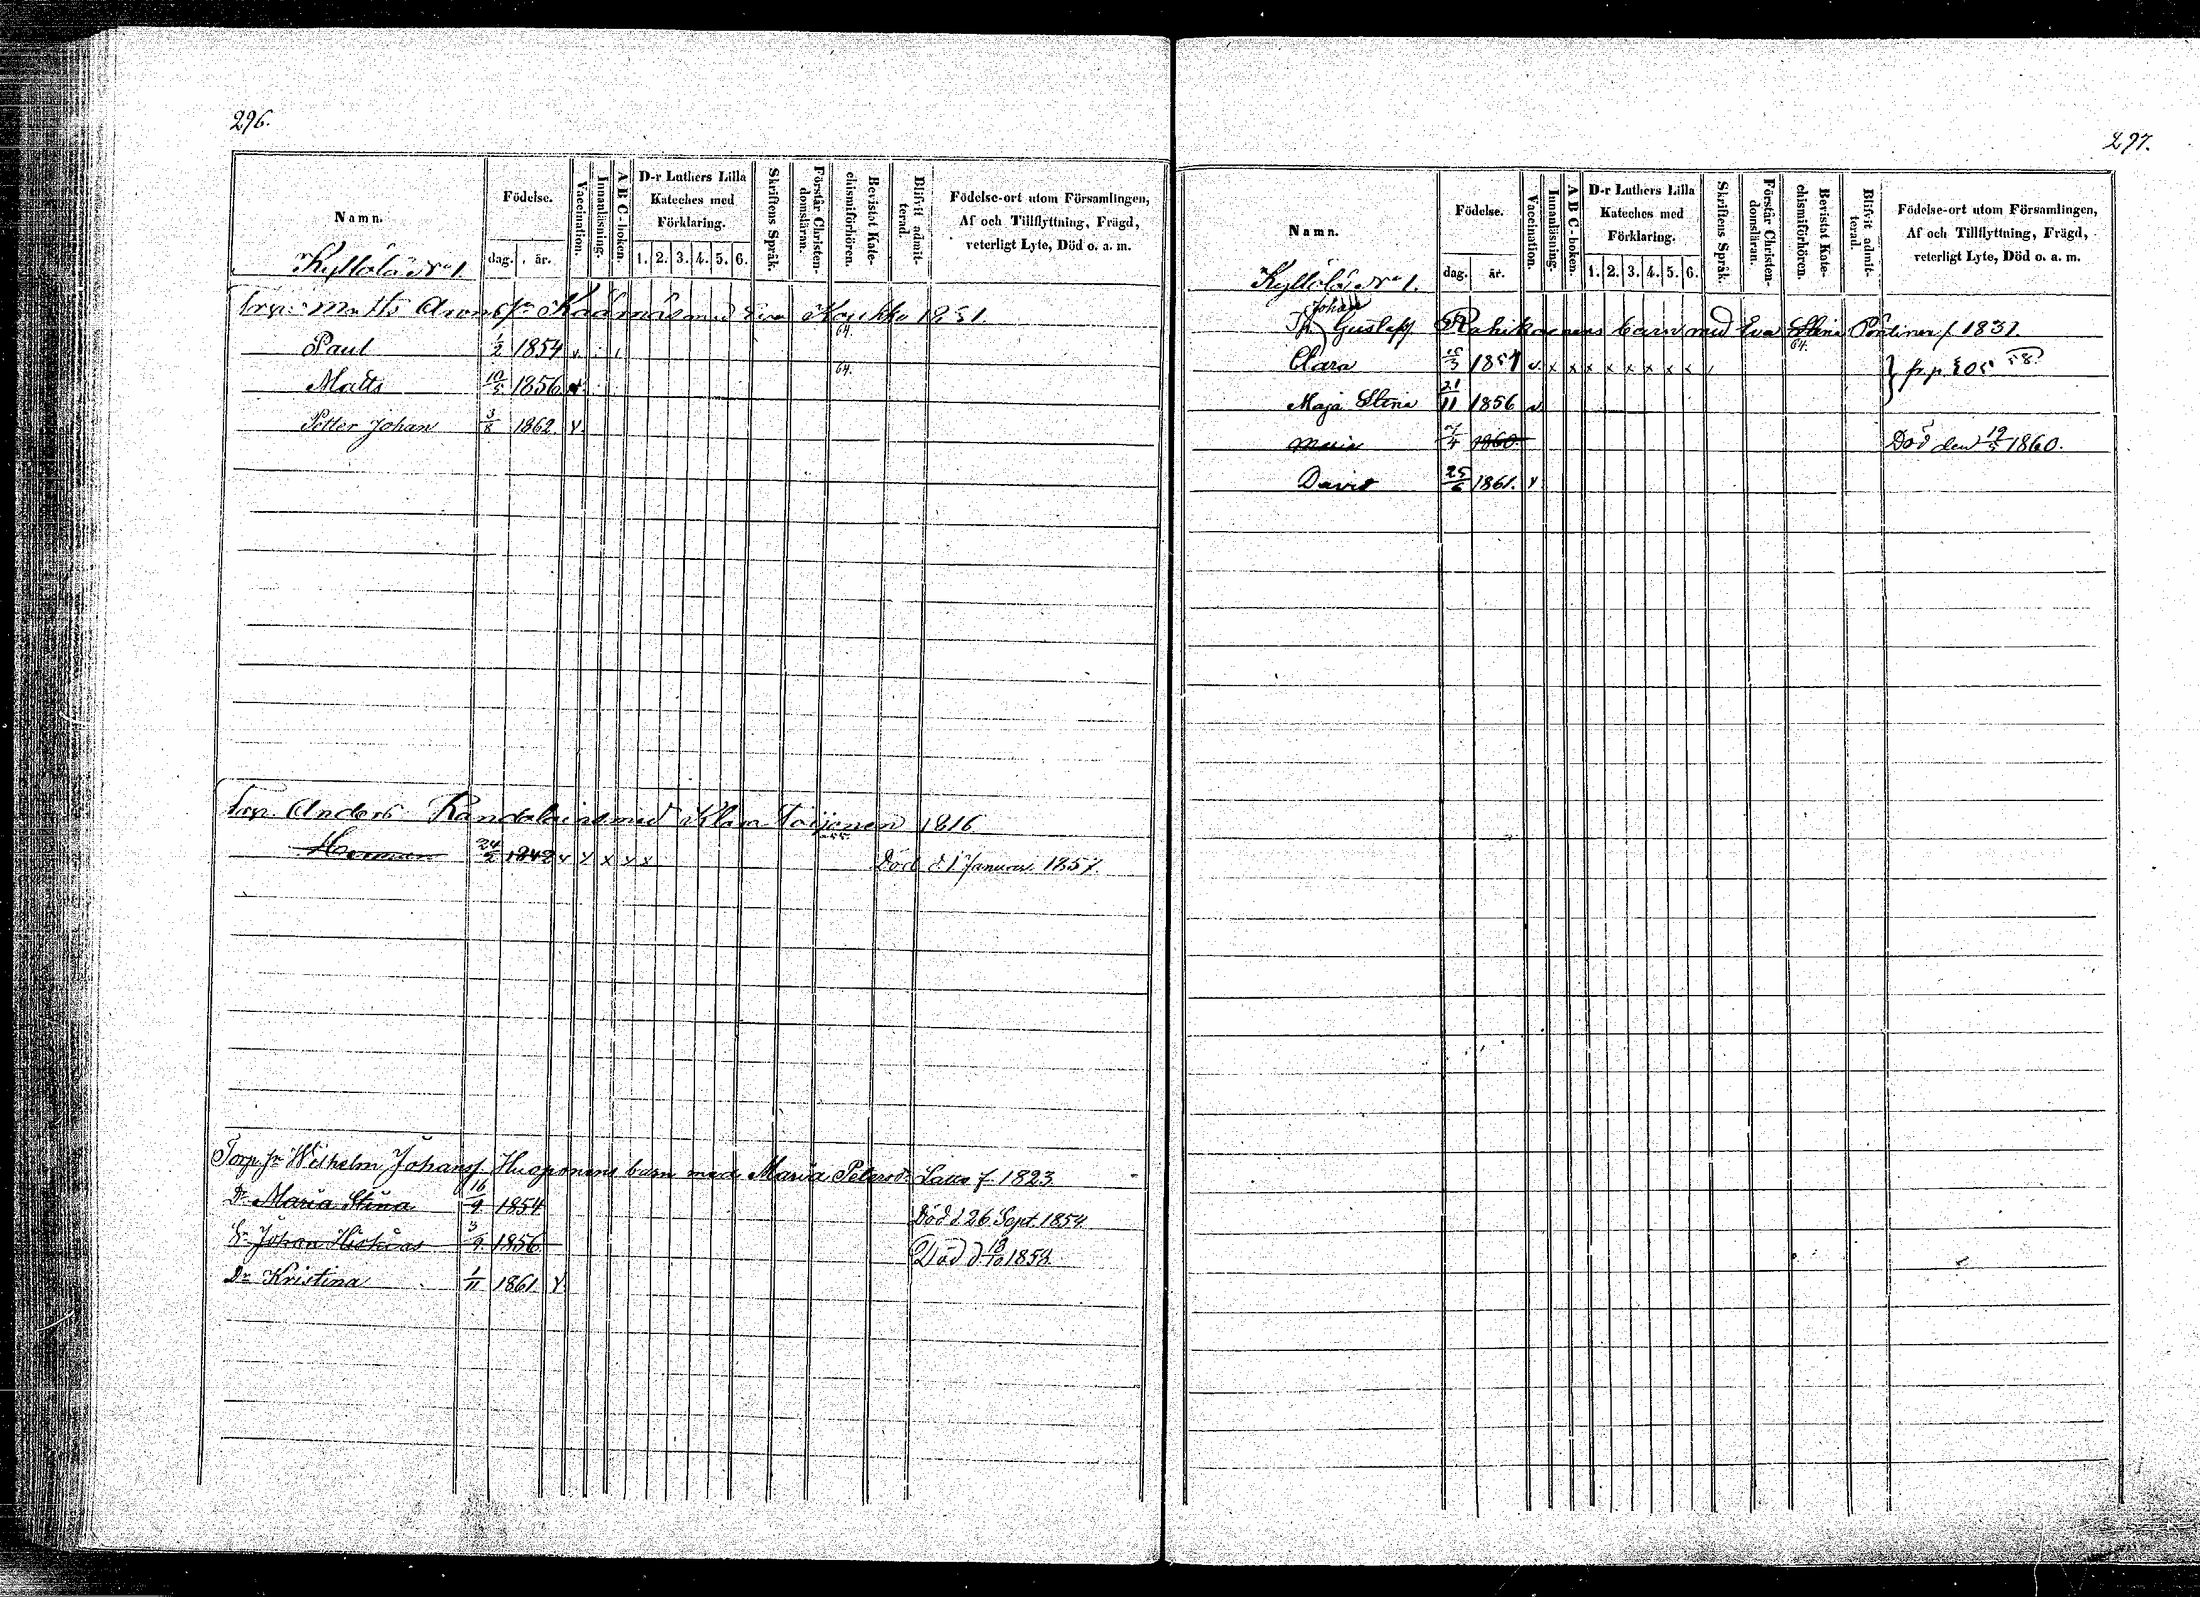 296.
Namn. Födelse. dag. år. Vaccination. Innanläsning. A B C-boken. D-r Luthers Lilla Kateches med Förklaring. 1. 2. 3. 4. 5. 6. Skriftens Språk. Förstår Christendomsläran. Bevistat Katechismiförhören. Blifvit admitterad. Födelse-ort utom Församlingen, Af och Tillflyttning, Frägd, veterligt Lyte, Död o. a. m.
Kyllölä No 1.
Torp. Matts Aronsson med Eva 1831.
64.
Paul 1/2 1854 v.
64.
Matts 10/5 1856
Petter Johan 3/8 1862. v.
Torp. Anders med Klara Toijonen 1816
55.
Herman 24/2 1842 v v x x x Död d. 1 Januari 1857.
Torp. Sn Wilhelm Johans. Huoponens barn med Maria Petersdr Lattu f. 1823
Dr Maria Stina 16/9 1854 Död d 26 Sept. 1854.
Sn Johan 3/9 1856 Död d. 13/10 1858.
Dr Kristina 1/11 1861 v.
297.
Namn. Födelse. dag. år. Vaccination. Innanläsning. A B C-boken. D-r Luthers Lilla Kateches med Förklaring. 1. 2. 3. 4. 5. 6. Skriftens Språk. Förstår Christendomsläran. Bevistat Katechismiförhören. Blifvit admitterad. Födelse-ort utom Församlingen, Af och Tillflyttning, Frägd, veterligt Lyte, Död o. a. m.
Kyllölä No 1.
Johan
Gustaff Rahikaenens barn med Eva Stina Pöntinen f. 1831.
64.
Clara 1851 v. x x x x x x x x
58
Maja Stina 21/11 1856 v
Maria 7/4 1860 Död den 19/5 1860.
David 25/6 1861. v